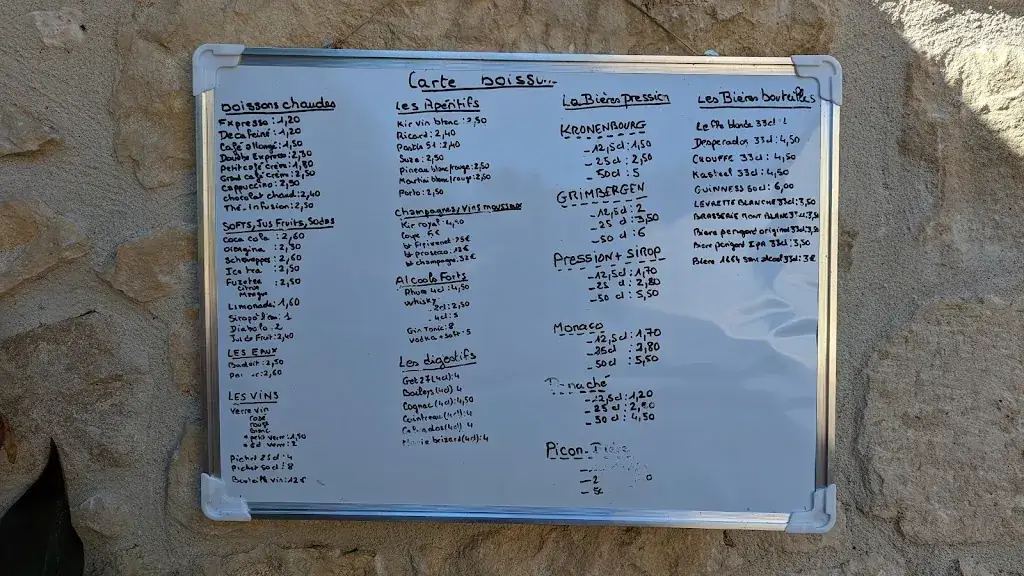 Carte boissu...
boissons chaudes
Expresso : 1,20
Decafeiné : 1,20
Café allongé : 1,50
Double Express : 2,50
Petit café crème : 1,80
Grand café crème : 2,50
Cappuccino : 2,50
chocolat chaud : 2,40
Thé - Infusion : 2,50
SOFTS, Jus Fruits, Sodas
Coca cola : 2,60
Orangina : 2,50
Schweppes : 2,60
Ice tea : 2,50
Fuzetea : 2,50
citrus
Mango
Limonade : 1,60
Sirop à l'eau : 1
Diabolo : 2
Jus de Fruit : 2,40
LES EAUX
Badoit : 2,50
2,60
LES VINS
Verre vin
rosé
rouge
blanc
* petit verre : 1,50
verre : 2
Pichet 25cl : 4
Pichet 50cl : 8
Bouteille vin : 12€
Les Apéritifs
Kir vin blanc : 2,50
Ricard : 2,40
Pastis 51 : 2,40
Suze : 2,50
Pineau blanc/rouge : 2,50
Martini blanc/rouge : 2,50
Porto : 2,50
Champagnes, Vins mousseux
Kir royal : 4,50
Coupe 5€
bt prosecco
bt champagne
Alcools Forts
Rhum 4cl : 4,50
Whisky
- 2cl : 2,50
4cl : 5
Gin Tonic : 8
Vodka + soft : 5
Les digestifs
Get 27 (4cl) : 4
Baileys (4cl) : 4
Cognac (4cl) : 4,50
Cointreau (4cl) : 4
Calvados (4cl) : 4
Marie brizard (4cl) : 4
La Bières pression
KRONENBOURG
- 12,5cl : 1,50
- 25cl : 2,50
- 50cl : 5
GRIMBERGEN
- 12,5cl : 2
- 25 cl : 3,50
- 50 cl : 6
Pression + sirop
- 12,5cl : 1,70
- 25 cl : 2,80
- 50 cl : 5,50
Monaco
- 12,5cl : 1,70
- 25cl : 2,80
- 50cl : 5,50
Panaché
- 12,5cl : 1,20
- 25 cl : 2,20
- 50 cl : 4,50
Picon-Bière
- 2
- 50
Les Bières bouteilles
Leffe blonde 33cl :
Desperados 33cl : 4,50
Chouffe 33cl : 4,50
Kasteel 33cl : 4,50
GUINNESS 50cl : 6,00
LEVRETTE BLANCHE 33cl : 3,50
BRASSERIE MONT BLANC 33cl : 3,50
Biere perigord original 33cl : 3,50
Biere perigord IPA 33cl : 3,50
Biere 1664 sans alcool 33cl : 3€